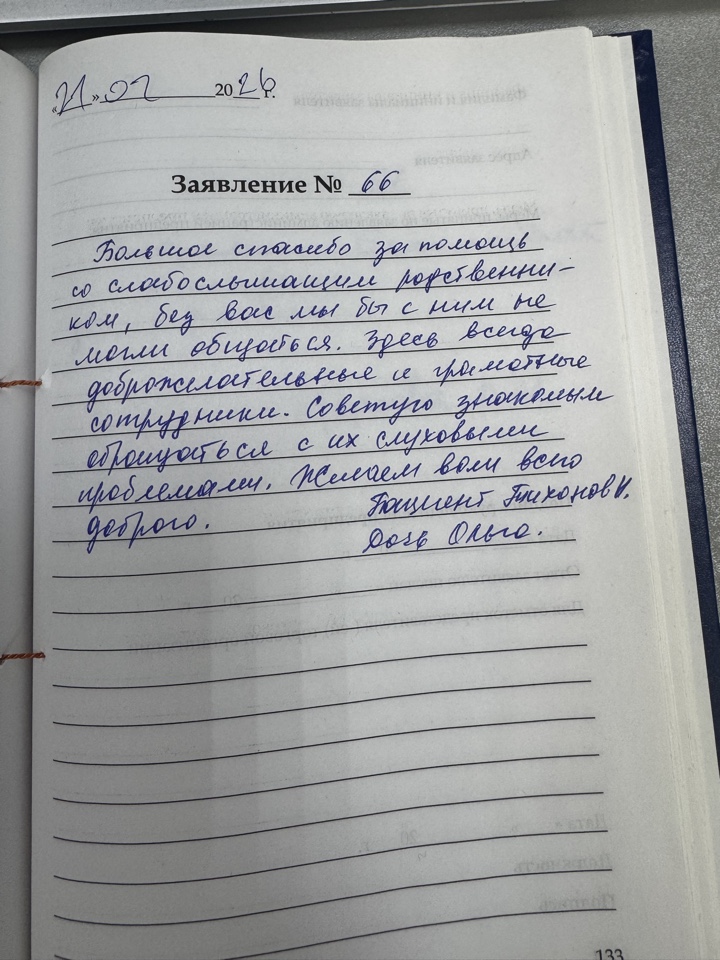 «21» 02 2026 г.
Заявление № 66
Большое спасибо за помощь
со слабослышащим родственни-
ком, без вас мы бы с ним не
могли общаться. Здесь всегда
доброжелательные и грамотные
сотрудники. Советую знакомым
обращаться с их слуховыми
проблемами. Желаем вам всего
доброго. Пациент Тихонов И.
Дочь Ольга.
133